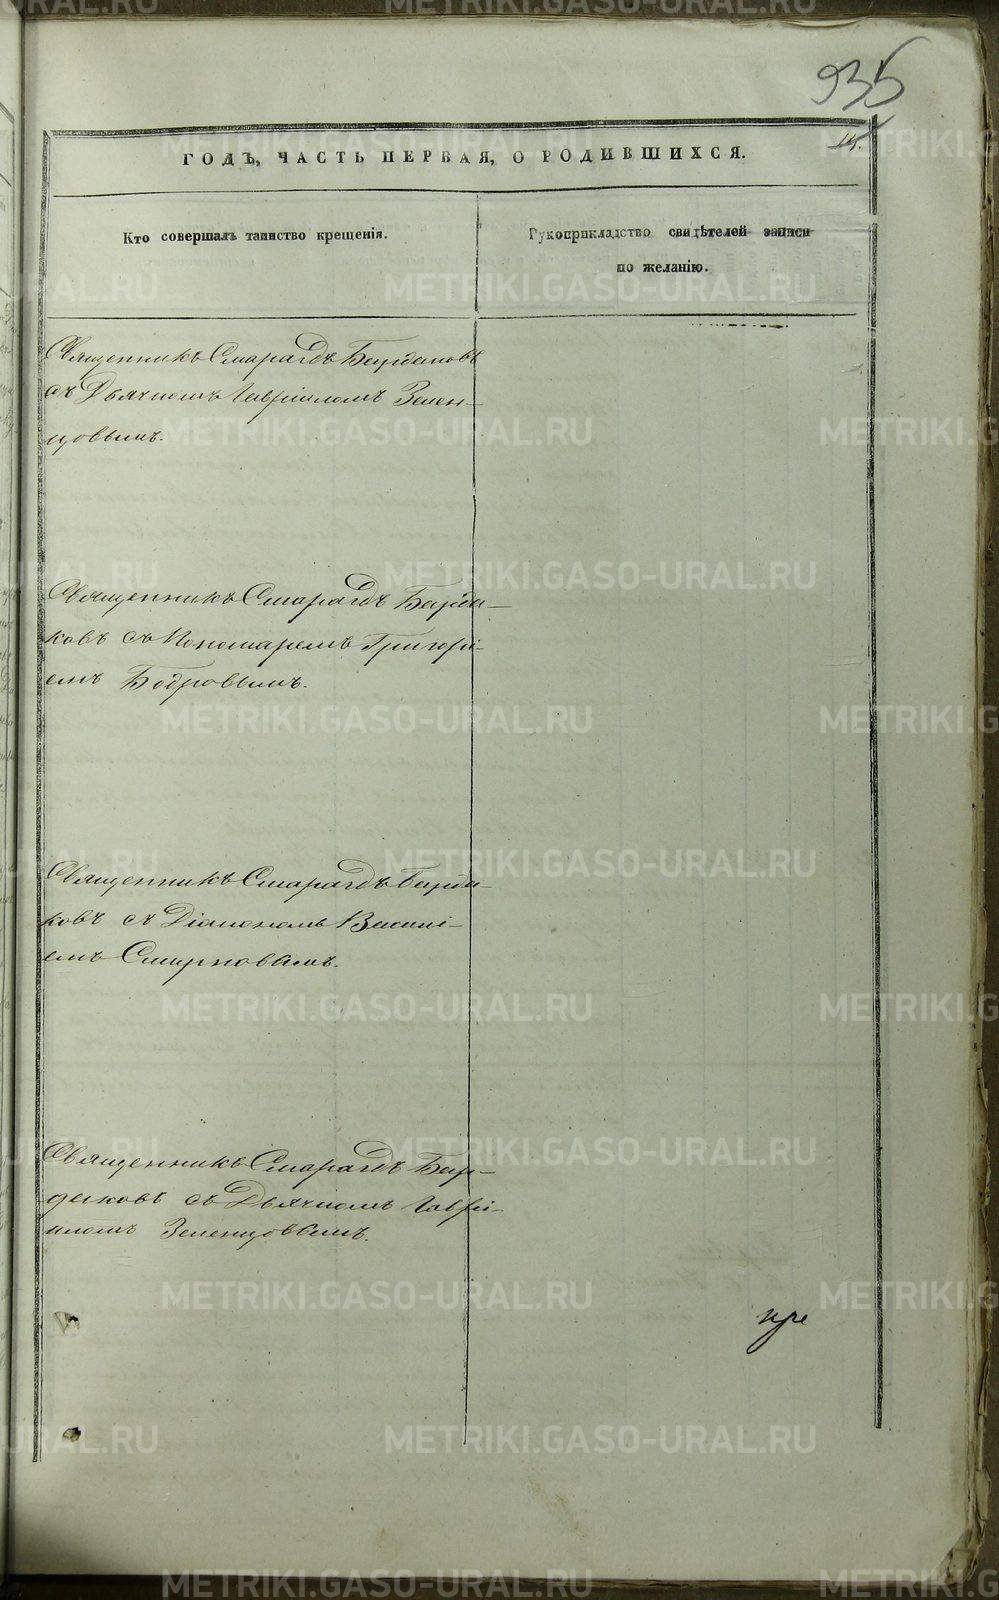 935
14.
ГОДЪ, ЧАСТЬ ПЕРВАЯ, О РОДИВШИХСЯ.
Кто совершалъ таинство крещенія.
Рукоприкладство свидѣтелей записи
по желанію.
Священникъ Смарагдъ Бурдаковъ
съ Дьячкомъ Гавріиломъ Зелен-
цовымъ.
Священникъ Смарагдъ Бурда-
ковъ съ Пономаремъ Григорі-
емъ Бобровымъ.
Священникъ Смарагдъ Бурда-
ковъ съ Діакономъ Васілі-
емъ Смирновымъ.
Священникъ Смарагдъ Бур-
даковъ съ Дьячкомъ Гаврі-
иломъ Зеленцовымъ.
METRIKI.GASO-URAL.RU